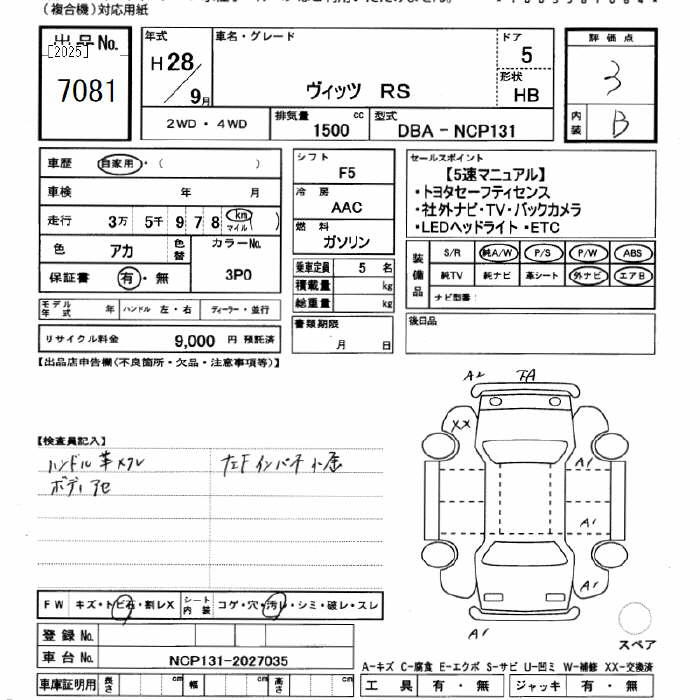 (複合機)対応用紙
出品No.
[2025]
7081
年式
H28/9月
車名・グレード
ヴィッツ RS
ドア
5
形状
HB
評価点
3
内装
B
2WD・4WD
排気量
1500 cc
型式
DBA-NCP131
車歴 自家用・( )
車検 年 月
走行 3万 5千 9 7 8 km マイル ( )
色 アカ 色替
カラーNo.
3P0
保証書 有・無
モデル年式 年 ハンドル 左・右 ディーラー・並行
リサイクル料金 9,000 円 預託済
シフト
F5
冷房
AAC
燃料
ガソリン
乗車定員 5 名
積載量 kg
総重量 kg
書類期限
月 日
セールスポイント
【5速マニュアル】
・トヨタセーフティセンス
・社外ナビ・TV・バックカメラ
・LEDヘッドライト・ETC
装備品
S/R 純A/W P/S P/W ABS
純TV 純ナビ 革シート 外ナビ エアB
ナビ型番:
後日品
【出品店申告欄(不良箇所・欠品・注意事項等)】
【検査員記入】
ハンドル革スレ
ボディアセ
A2 FA
XX
A1
A1
A1
A1
スペア
FW キズ・トビ石・割レX シート内装 コゲ・穴・汚レ・シミ・破レ・スレ
登録No.
車台No. NCP131-2027035
車庫証明用 長さ cm 幅 cm 高さ cm
A-キズ C-腐食 E-エクボ S-サビ U-凹ミ W-補修 XX-交換済
工具 有・無 ジャッキ 有・無